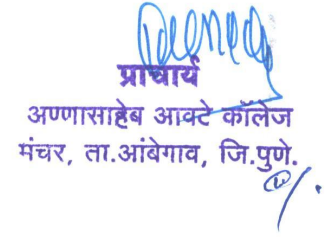 प्राचार्य
अण्णासाहेब आवटे कॉलेज
मंचर, ता.आंबेगाव, जि.पुणे.